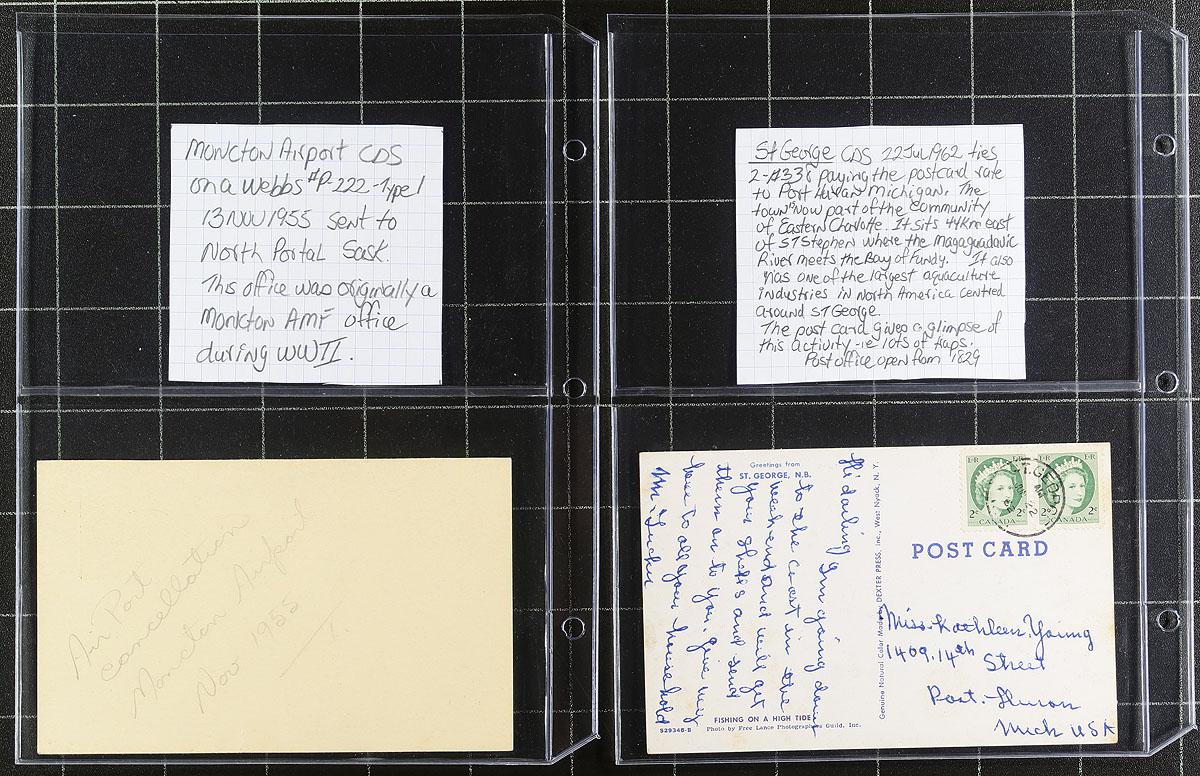 Moncton Airport CDS
on a Webbs #P-222-Type 1
13 NOV 1955 sent to
North Portal Sask.
This office was originally a
Moncton AMF office
during WWII.
St George CDS 22 Jul 1962 ties
2-#338 paying the postcard rate
to Port Huran Michigan. The
town now part of the community
of Eastern Charlotte. It sits 44km east
of St Stephen where the Magaguadavic
River meets the Bay of Fundy. It also
has one of the largest aquaculture
industries in North America centred
around St George.
The post card gives a glimpse of
this activity - ie lots of traps.
Post office open from 1829
Air Port
cancelation
Moncton Airport
Nov 1955
Greetings from
ST. GEORGE, N.B.
Hi darling I'm going down
to the coast in the
weekend and will get
your shells and send
them on to you, give my
love to all your household
Mr. Tucker
FISHING ON A HIGH TIDE
Photo by Free Lance Photographers Guild, Inc.
S29348-B
Genuine Natural Color Made by DEXTER PRESS, Inc., West Nyack, N. Y.
E II R E II R
2c 2c 2c
CANADA CANADA
ST GEORGE
POST CARD
Miss. Kathleen. Young
1409. 14th Street
Port. Huron
Mich USA